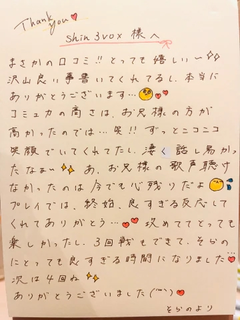 Thank you
shin3vox 様へ
まさかの口コミ!!とっても嬉しい〜
沢山良い事書いてくれてるし、本当に
ありがとうございます…
コミュ力の高さは、お兄様の方が
高かったのでは…笑!!ずっとニコニコ
笑顔でいてくれてたし、凄く話し易かっ
たなぁー あ、お兄様の歌声聴け
なかったのは今でも心残りだよ
プレイでは、終始、良すぎる反応して
くれてありがとう…攻めててとっても
楽しかったし、3回戦もできて、そらの
にとっても良すぎる時間になりました
次は4回ね
ありがとうございました
そらのより